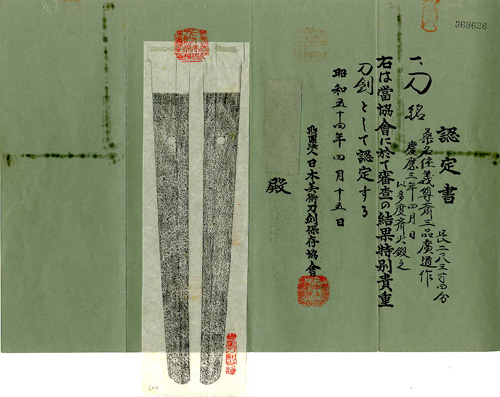 認定書
一、刀 銘
桑名住義尊斎三品廣道作
慶應三年四月日
以多度斉火鍛之
長二尺三寸四分
右は當協會に於て審査の結果特別貴重
刀剣として認定する
昭和五十四年四月十五日
財団法人日本美術刀剣保存協會
殿
369626